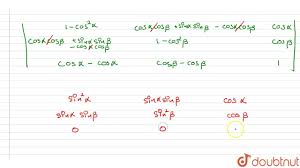 1-cos²α cosα cosβ + sinα sinβ - cosα cosβ cosα
cosα cosβ + sinα sinβ - cosα cosβ 1-cos²β cosβ
cosα - cosα cosβ - cosβ 1
sin²α sinα sinβ cosα
sinα sinβ sin²β cosβ
0 0
doubtnut